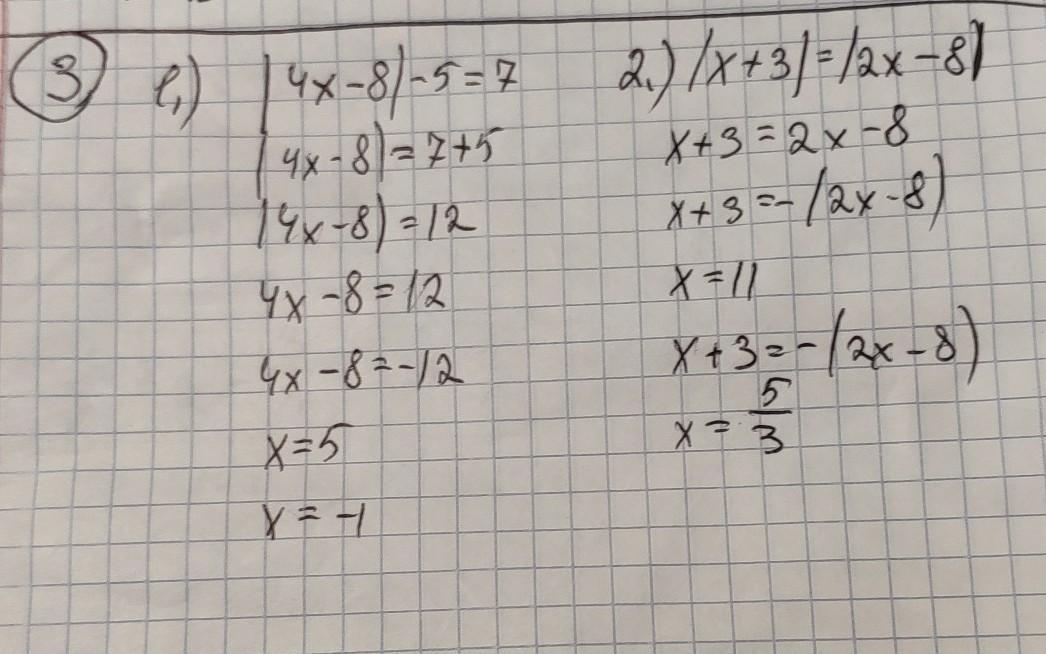 3
1.) |4x-8|-5=7
|4x-8|=7+5
|4x-8|=12
4x-8=12
4x-8=-12
x=5
x=-1
2.) |x+3|=|2x-8|
x+3=2x-8
x+3=-(2x-8)
x=11
x+3=-(2x-8)
x=5/3